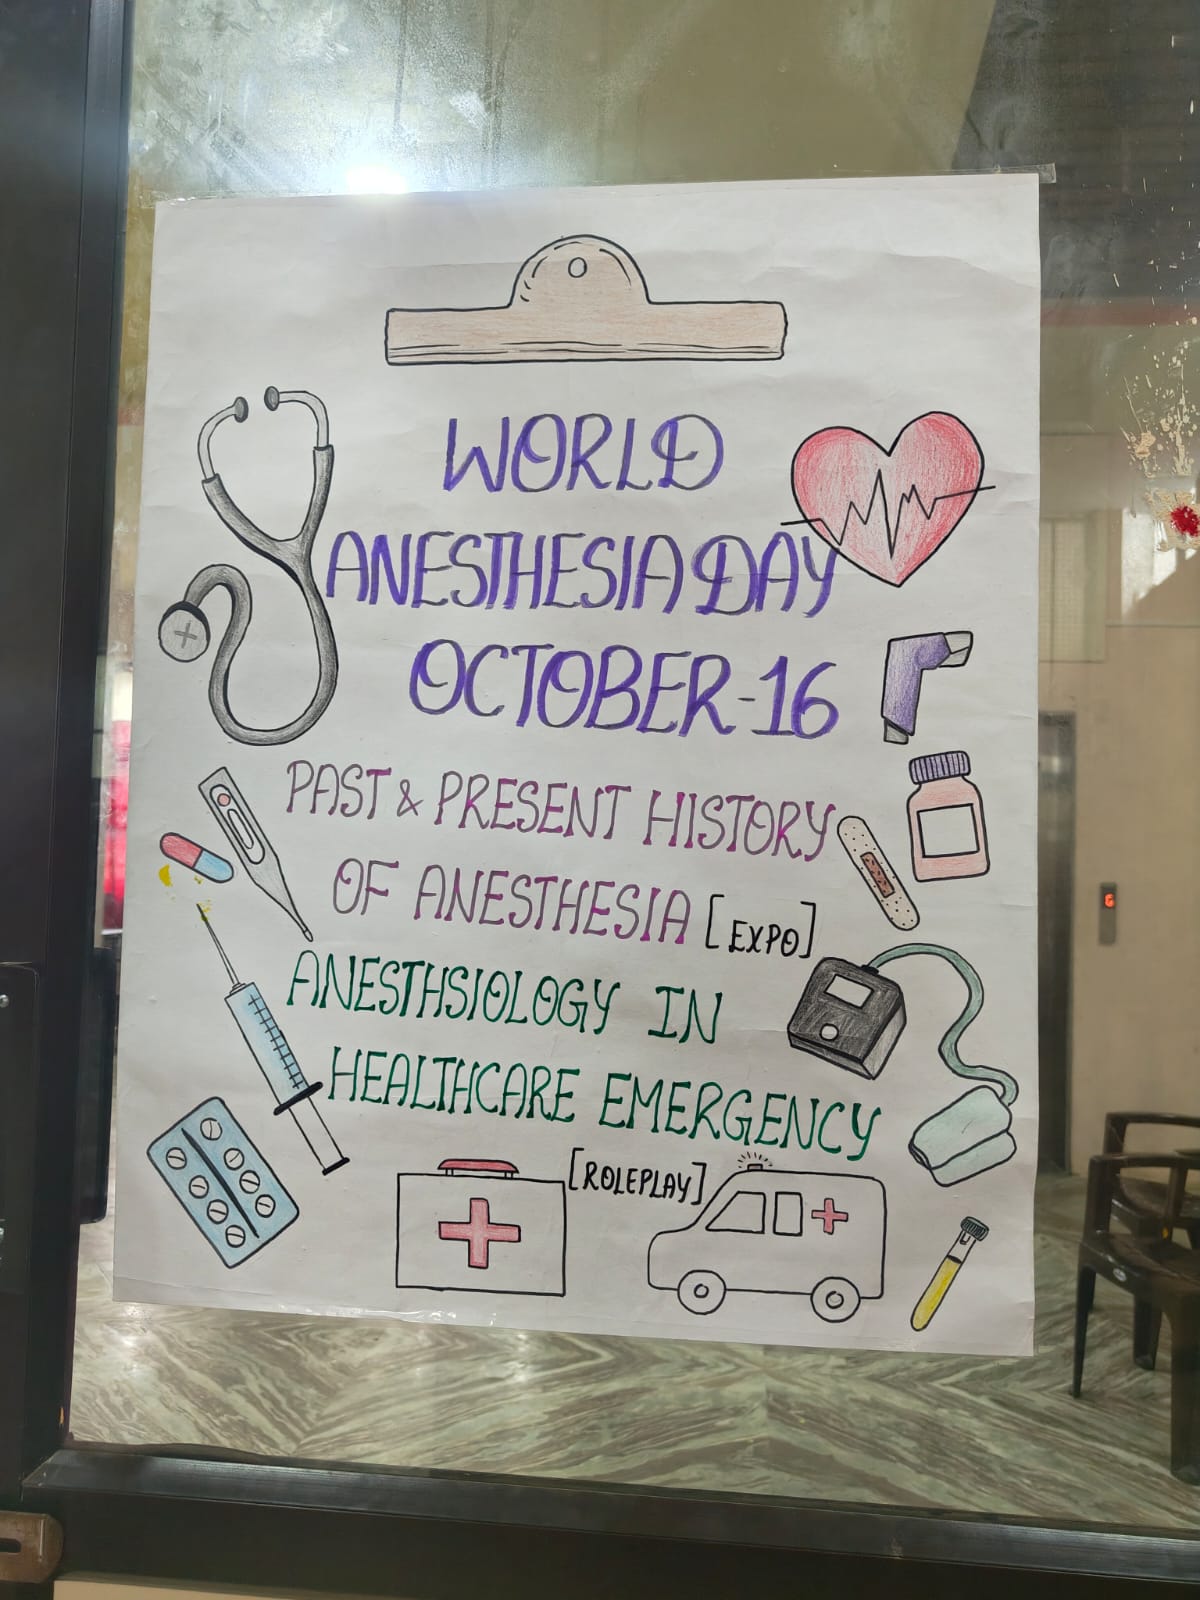 WORLD
ANESTHESIA DAY
OCTOBER-16
PAST & PRESENT HISTORY
OF ANESTHESIA [EXPO]
ANESTHSIOLOGY IN
HEALTHCARE EMERGENCY
[ROLEPLAY]